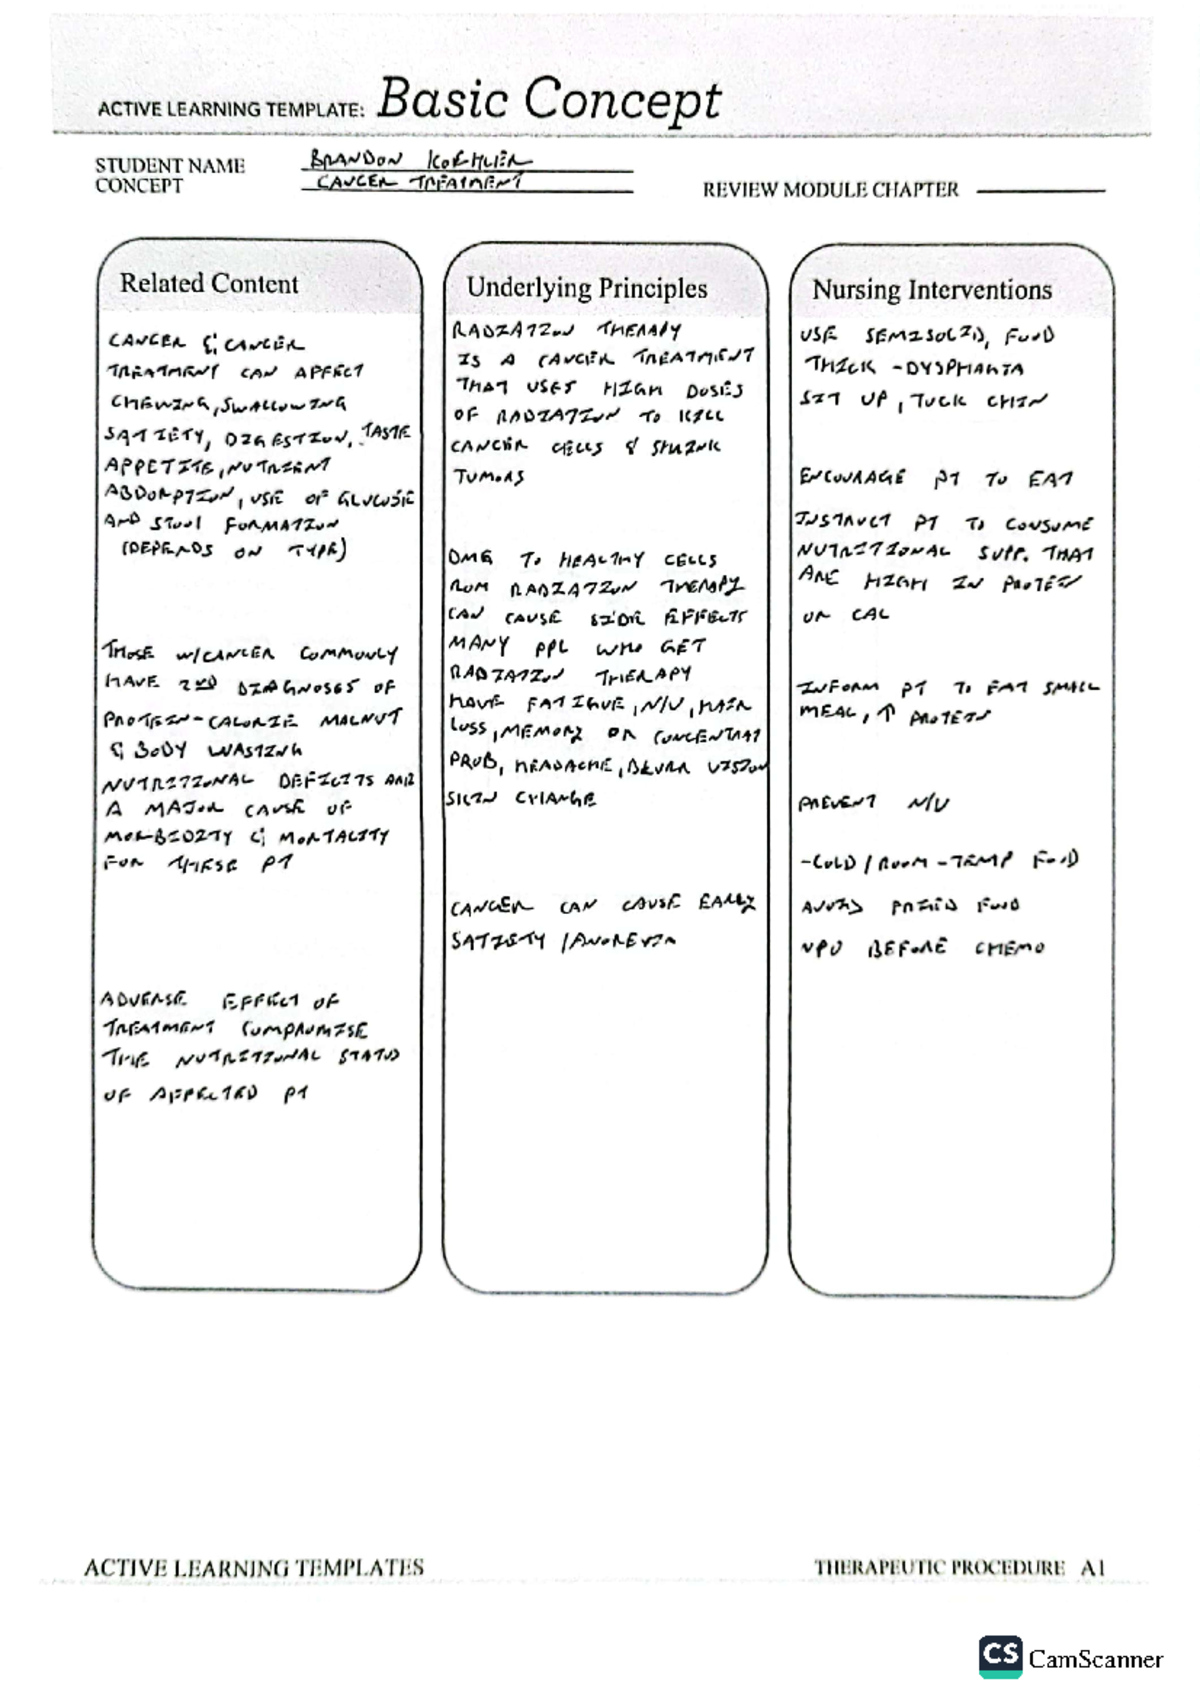 ACTIVE LEARNING TEMPLATE: Basic Concept
STUDENT NAME BRANDON KOEHLER
CONCEPT CANCER TREATMENT
REVIEW MODULE CHAPTER
Related Content
CANCER & CANCER
TREATMENT CAN AFFECT
CHEWING, SWALLOWING
SATIETY, DIGESTION, TASTE
APPETITE, NUTRIENT
ABDORPTION, USE OF GLUCOSE
AND STOOL FORMATION
(DEPENDS ON TYPE)
THOSE W/CANCER COMMONLY
HAVE 2ND DIAGNOSES OF
PROTEIN-CALORIE MALNUT
& BODY WASTING
NUTRITIONAL DEFICITS ARE
A MAJOR CAUSE OF
MORBIDITY & MORTALITY
FOR THESE PT
ADVERSE EFFECT OF
TREATMENT COMPROMISE
THE NUTRITIONAL STATUS
OF AFFECTED PT
Underlying Principles
RADIATION THERAPY
IS A CANCER TREATMENT
THAT USES HIGH DOSES
OF RADIATION TO KILL
CANCER CELLS & SHRINK
TUMORS
DMG TO HEALTHY CELLS
ROM RADIATION THERAPY
CAN CAUSE SIDE EFFECTS
MANY PPL WHO GET
RADIATION THERAPY
HAVE FATIGUE, N/V, HAIR
LOSS, MEMORY OR CONCENTRAT
PROB, HEADACHE, BLURR VISION
SKIN CHANGE
CANCER CAN CAUSE EARLY
SATIETY /ANOREXIA
Nursing Interventions
USE SEMISOLID, FOOD
THICK - DYSPHAGIA
SIT UP, TUCK CHIN
ENCOURAGE PT TO EAT
INSTRUCT PT TO CONSUME
NUTRITIONAL SUPP. THAT
ARE HIGH IN PROTEIN
OR CAL
INFORM PT TO EAT SMALL
MEAL, ↑ PROTEIN
PREVENT N/V
-COLD / ROOM - TEMP FOOD
AVOID FRIED FOOD
NPO BEFORE CHEMO
ACTIVE LEARNING TEMPLATES
THERAPEUTIC PROCEDURE A1
CS CamScanner